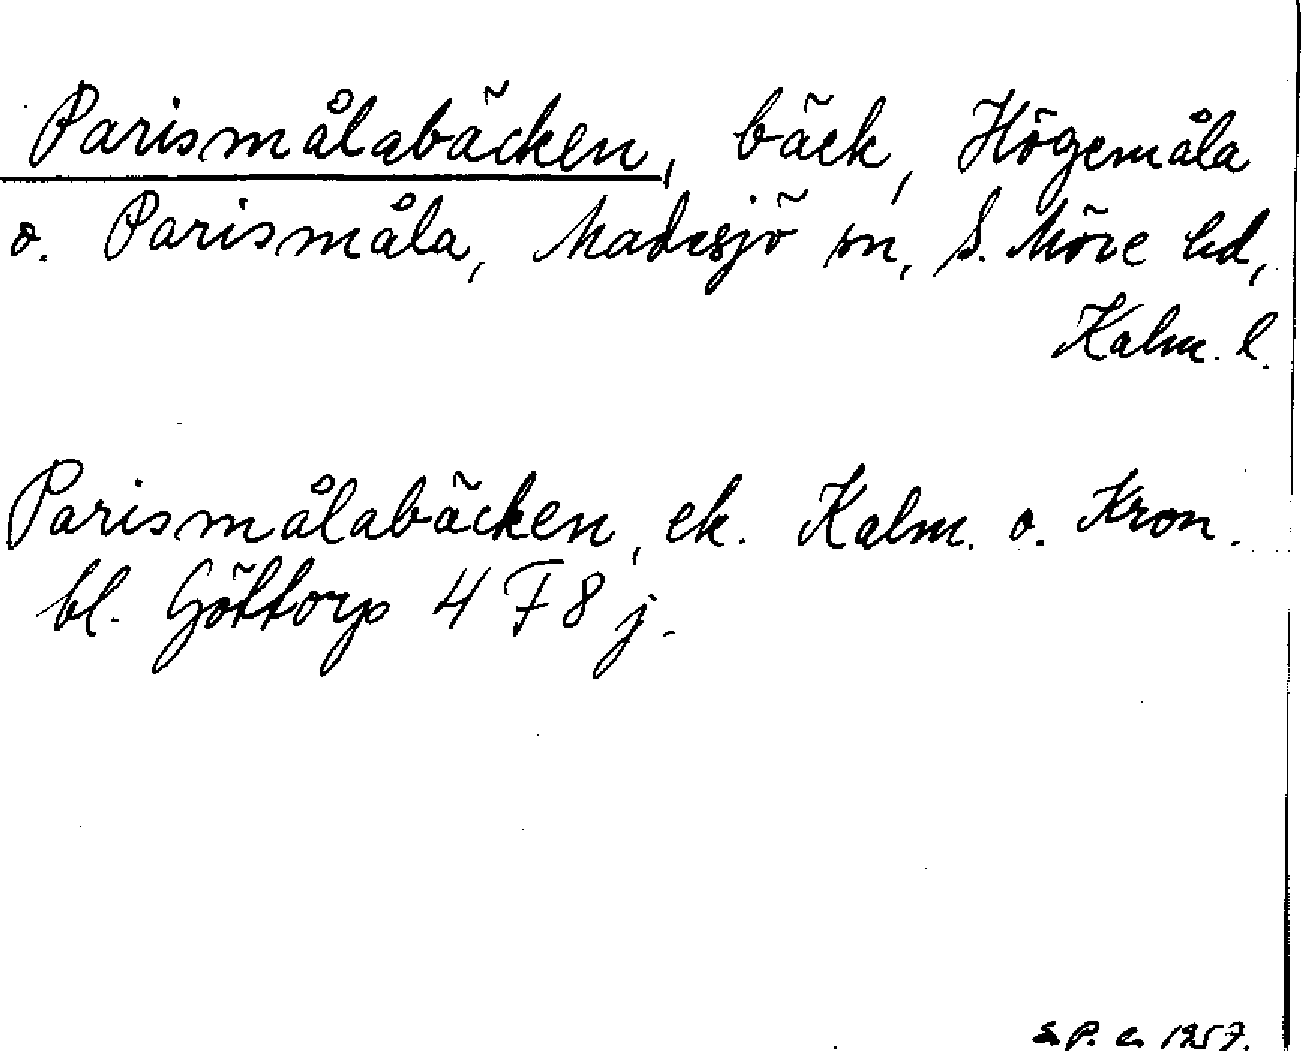 Parismålabäcken, bäck, Högemåla
o. Parismåla, Madesjö sn, S. Möre hd,
Kalm. l.
Parismålabäcken, ek. Kalm. o. Kron.
bl. Göttorp 4 F 8 j.
1957.